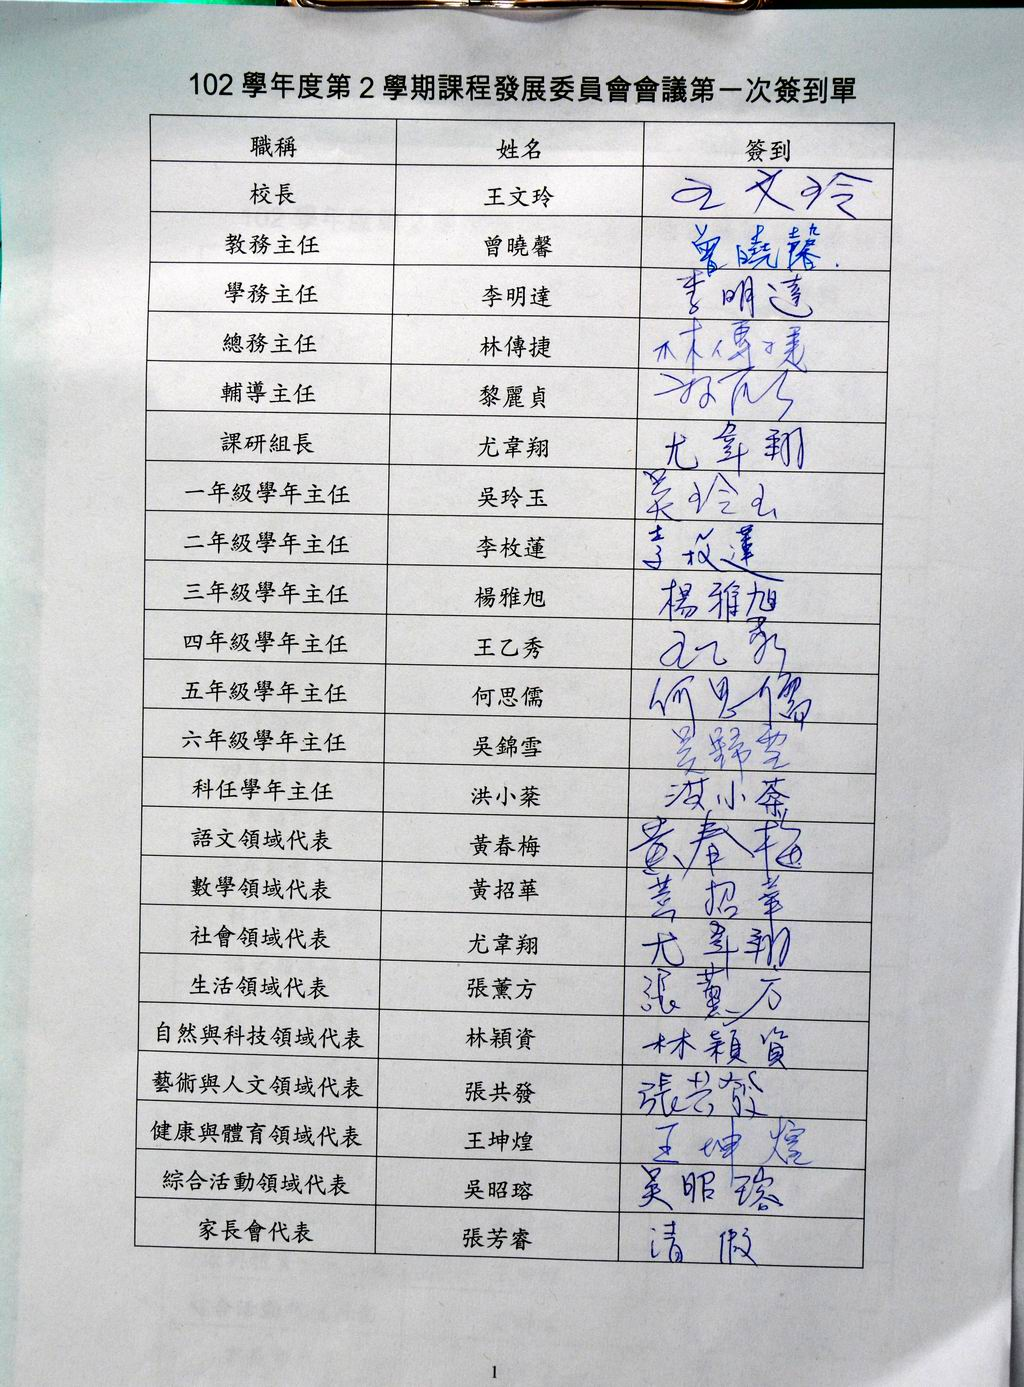 102 學年度第 2 學期課程發展委員會會議第一次簽到單
職稱 姓名 簽到
校長 王文玲 王文玲
教務主任 曾曉馨 曾曉馨
學務主任 李明達 李明達
總務主任 林傳捷 林傳捷
輔導主任 黎麗貞
課研組長 尤韋翔 尤韋翔
一年級學年主任 吳玲玉 吳玲玉
二年級學年主任 李枚蓮 李枚蓮
三年級學年主任 楊雅旭 楊雅旭
四年級學年主任 王乙秀 王乙秀
五年級學年主任 何思儒 何思儒
六年級學年主任 吳錦雪 吳錦雪
科任學年主任 洪小蘂 洪小
語文領域代表 黃春梅 黃春梅
數學領域代表 黃招華 黃招華
社會領域代表 尤韋翔 尤韋翔
生活領域代表 張薰方 張薰方
自然與科技領域代表 林穎資 林穎資
藝術與人文領域代表 張共發 張共發
健康與體育領域代表 王坤煌 王坤煌
綜合活動領域代表 吳昭瑢 吳昭瑢
家長會代表 張芳睿 請假
1